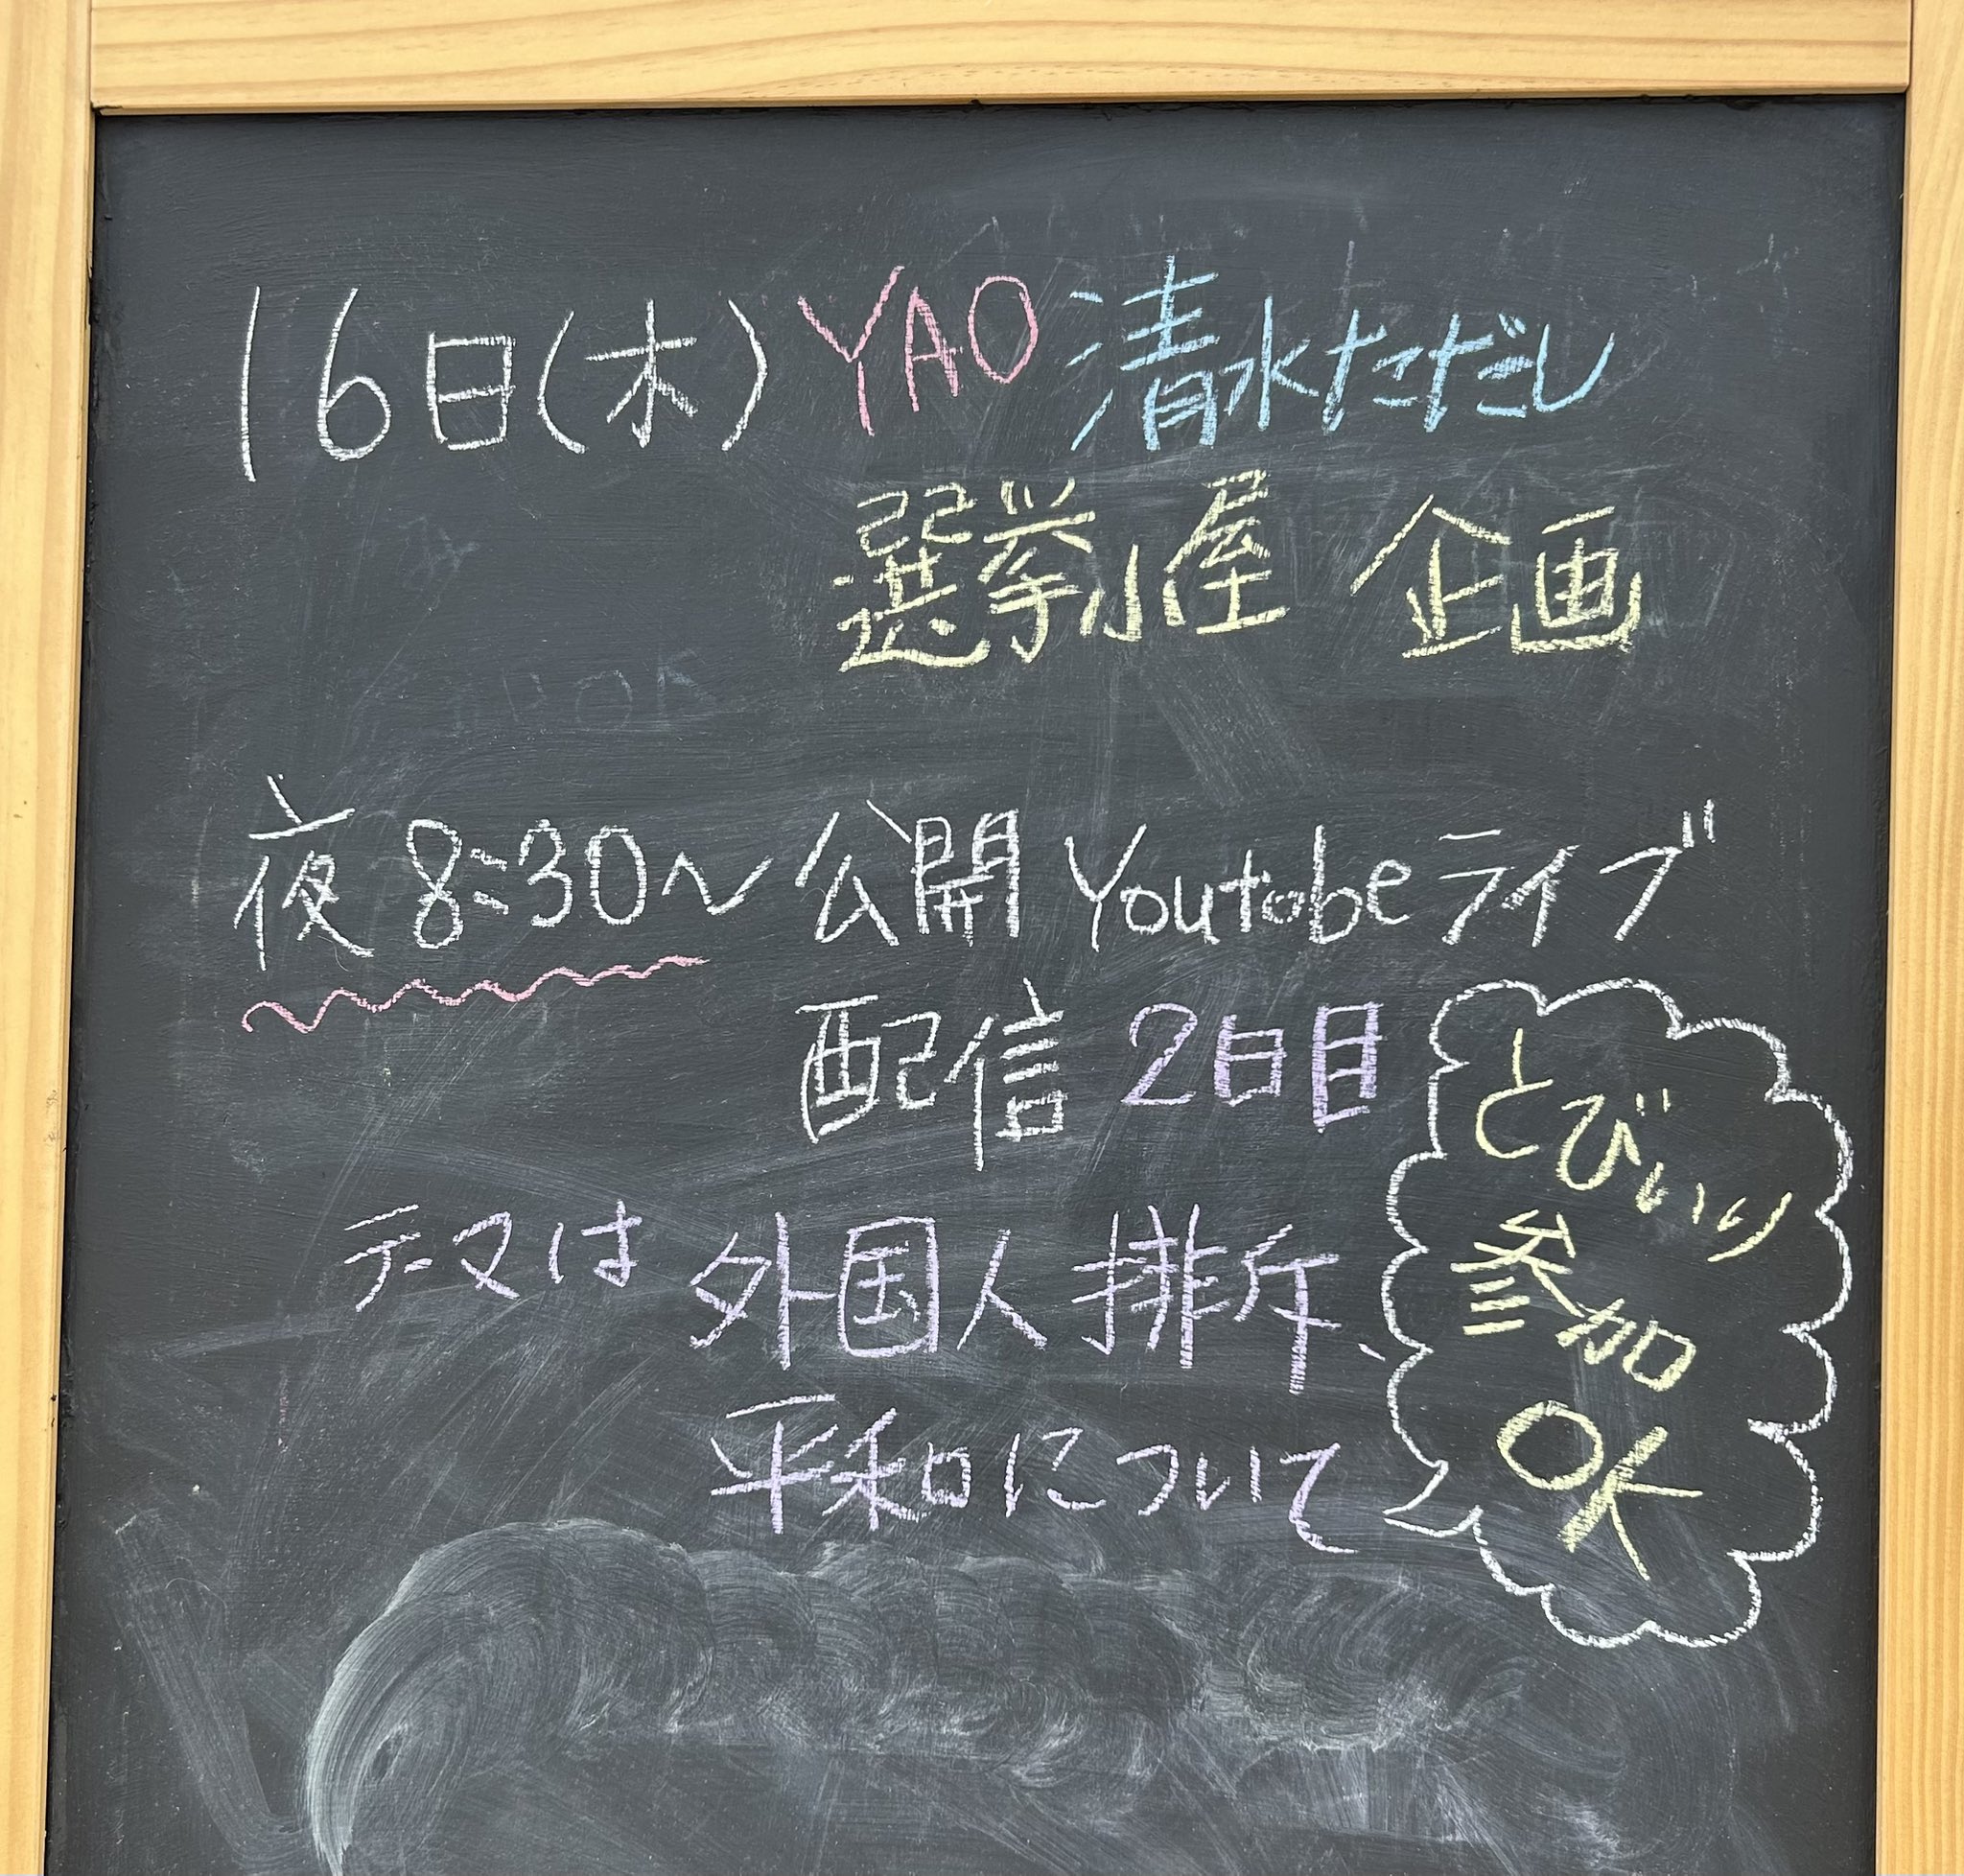 16日(木) YAO 清水ただし
選挙小屋 企画
夜 8:30〜 公開 Youtobe ライブ
配信 2日目
テーマは 外国人 排斥、
平和について
とびいり
参加
OK